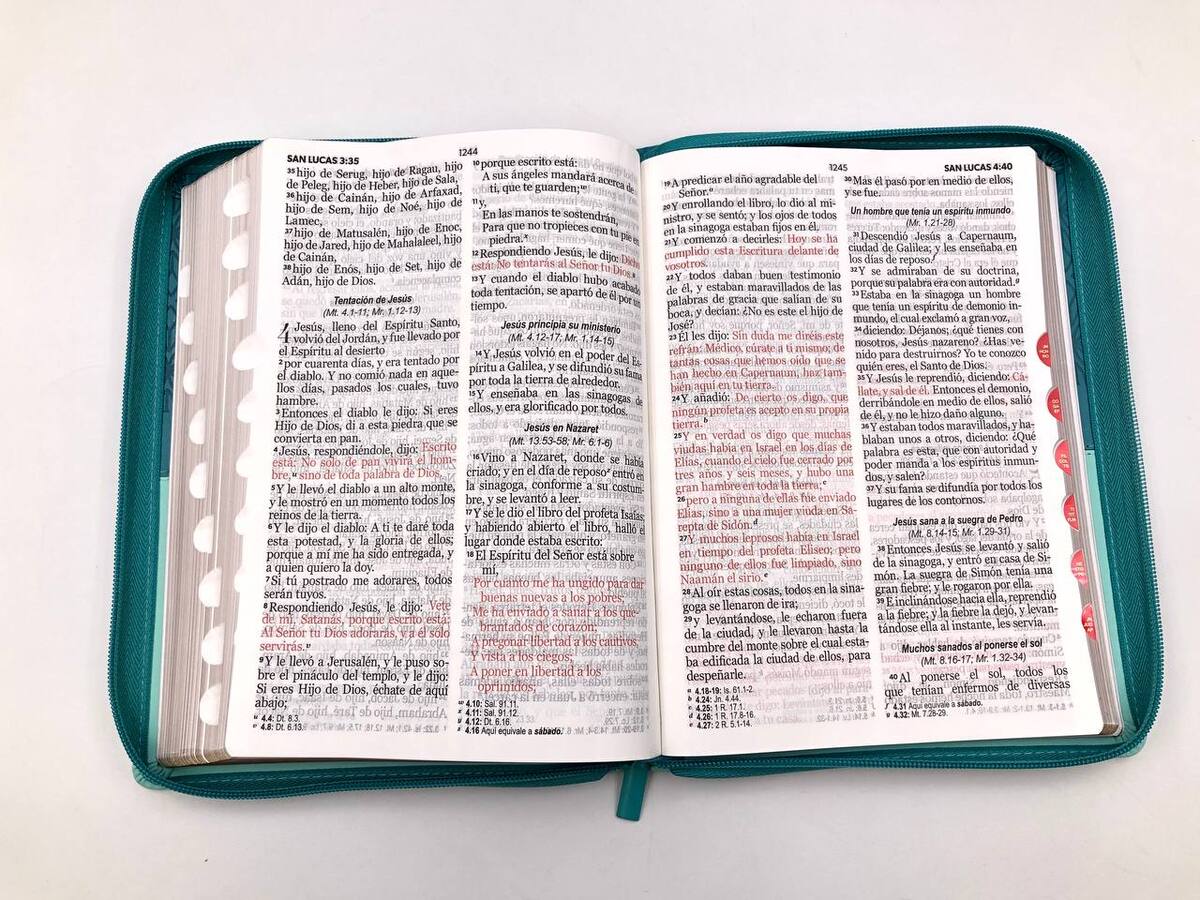 SAN LUCAS 3:35
1244
35 hijo de Serug, hijo de Ragau, hijo
de Peleg, hijo de Heber, hijo de Sala,
36 hijo de Cainán, hijo de Arfaxad,
hijo de Sem, hijo de Noé, hijo de
Lamec,
37 hijo de Matusalén, hijo de Enoc,
hijo de Jared, hijo de Mahalaleel, hijo
de Cainán,
38 hijo de Enós, hijo de Set, hijo de
Adán, hijo de Dios.
Tentación de Jesús
(Mt. 4.1-11; Mr. 1.12-13)
4 Jesús, lleno del Espíritu Santo,
volvió del Jordán, y fue llevado por
el Espíritu al desierto
2 por cuarenta días, y era tentado por
el diablo. Y no comió nada en aque-
llos días, pasados los cuales, tuvo
hambre.
3 Entonces el diablo le dijo: Si eres
Hijo de Dios, di a esta piedra que se
convierta en pan.
4 Jesús, respondiéndole, dijo: Escrito
está: No solo de pan vivirá el hom-
bre, sino de toda palabra de Dios.
5 Y le llevó el diablo a un alto monte,
y le mostró en un momento todos los
reinos de la tierra.
6 Y le dijo el diablo: A ti te daré toda
esta potestad, y la gloria de ellos;
porque a mí me ha sido entregada, y
a quien quiero la doy.
7 Si tú postrado me adorares, todos
serán tuyos.
8 Respondiendo Jesús, le dijo: Vete
de mí, Satanás, porque escrito está:
Al Señor tu Dios adorarás, y a él solo
servirás.
9 Y le llevó a Jerusalén, y le puso so-
bre el pináculo del templo, y le dijo:
Si eres Hijo de Dios, échate de aquí
abajo;
4.4: Dt. 8.3.
4.8: Dt. 6.13.
10 porque escrito está:
A sus ángeles mandará acerca de
ti, que te guarden;
11 y,
En las manos te sostendrán,
Para que no tropieces con tu pie en
piedra.
12 Respondiendo Jesús, le dijo: Dicho
está: No tentarás al Señor tu Dios.
13 Y cuando el diablo hubo acabado
toda tentación, se apartó de él por un
tiempo.
Jesús principia su ministerio
(Mt. 4.12-17; Mr. 1.14-15)
14 Y Jesús volvió en el poder del Es-
píritu a Galilea, y se difundió su fama
por toda la tierra de alrededor.
15 Y enseñaba en las sinagogas de
ellos, y era glorificado por todos.
Jesús en Nazaret
(Mt. 13.53-58; Mr. 6.1-6)
16 Vino a Nazaret, donde se había
criado; y en el día de reposo entró en
la sinagoga, conforme a su costum-
bre, y se levantó a leer.
17 Y se le dio el libro del profeta Isaías;
y habiendo abierto el libro, halló el
lugar donde estaba escrito:
18 El Espíritu del Señor está sobre
mí,
Por cuanto me ha ungido para dar
buenas nuevas a los pobres;
Me ha enviado a sanar a los que-
brantados de corazón;
A pregonar libertad a los cautivos,
Y vista a los ciegos;
A poner en libertad a los
oprimidos;
4.10: Sal. 91.11.
4.11: Sal. 91.12.
4.12: Dt. 6.16.
4.16 Aquí equivale a sábado.
1245
SAN LUCAS 4:40
19 A predicar el año agradable del
Señor.a
20 Y enrollando el libro, lo dio al mi-
nistro, y se sentó; y los ojos de todos
en la sinagoga estaban fijos en él.
21 Y comenzó a decirles: Hoy se ha
cumplido esta Escritura delante de
vosotros.
22 Y todos daban buen testimonio
de él, y estaban maravillados de las
palabras de gracia que salían de su
boca, y decían: ¿No es este el hijo de
José?
23 Él les dijo: Sin duda me diréis este
refrán: Médico, cúrate a ti mismo; de
tantas cosas que hemos oído que se
han hecho en Capernaum, haz tam-
bién aquí en tu tierra.
24 Y añadió: De cierto os digo, que
ningún profeta es acepto en su propia
tierra.b
25 Y en verdad os digo que muchas
viudas había en Israel en los días de
Elías, cuando el cielo fue cerrado por
tres años y seis meses, y hubo una
gran hambre en toda la tierra;c
26 pero a ninguna de ellas fue enviado
Elías, sino a una mujer viuda en Sa-
repta de Sidón.d
27 Y muchos leprosos había en Israel
en tiempo del profeta Eliseo; pero
ninguno de ellos fue limpiado, sino
Naamán el sirio.e
28 Al oír estas cosas, todos en la sina-
goga se llenaron de ira;
29 y levantándose, le echaron fuera
de la ciudad, y le llevaron hasta la
cumbre del monte sobre el cual esta-
ba edificada la ciudad de ellos, para
despeñarle.
a 4.18-19: Is. 61.1-2.
b 4.24: Jn. 4.44.
c 4.25: 1 R. 17.1.
d 4.26: 1 R. 17.8-16.
e 4.27: 2 R. 5.1-14.
30 Mas él pasó por en medio de ellos,
y se fue.
Un hombre que tenía un espíritu inmundo
(Mr. 1.21-28)
31 Descendió Jesús a Capernaum,
ciudad de Galilea; y les enseñaba en
los días de reposo.f
32 Y se admiraban de su doctrina,
porque su palabra era con autoridad.g
33 Estaba en la sinagoga un hombre
que tenía un espíritu de demonio in-
mundo, el cual exclamó a gran voz,
34 diciendo: Déjanos; ¿qué tienes con
nosotros, Jesús nazareno? ¿Has ve-
nido para destruirnos? Yo te conozco
quién eres, el Santo de Dios.
35 Y Jesús le reprendió, diciendo: Cá-
llate, y sal de él. Entonces el demonio,
derribándole en medio de ellos, salió
de él, y no le hizo daño alguno.
36 Y estaban todos maravillados, y ha-
blaban unos a otros, diciendo: ¿Qué
palabra es esta, que con autoridad y
poder manda a los espíritus inmun-
dos, y salen?
37 Y su fama se difundía por todos los
lugares de los contornos.
Jesús sana a la suegra de Pedro
(Mt. 8.14-15; Mr. 1.29-31)
38 Entonces Jesús se levantó y salió
de la sinagoga, y entró en casa de Si-
món. La suegra de Simón tenía una
gran fiebre; y le rogaron por ella.
39 E inclinándose hacia ella, reprendió
a la fiebre; y la fiebre la dejó, y levan-
tándose ella al instante, les servía.
Muchos sanados al ponerse el sol
(Mt. 8.16-17; Mr. 1.32-34)
40 Al ponerse el sol, todos los
que tenían enfermos de diversas
f 4.31 Aquí equivale a sábado.
g 4.32: Mt. 7.28-29.